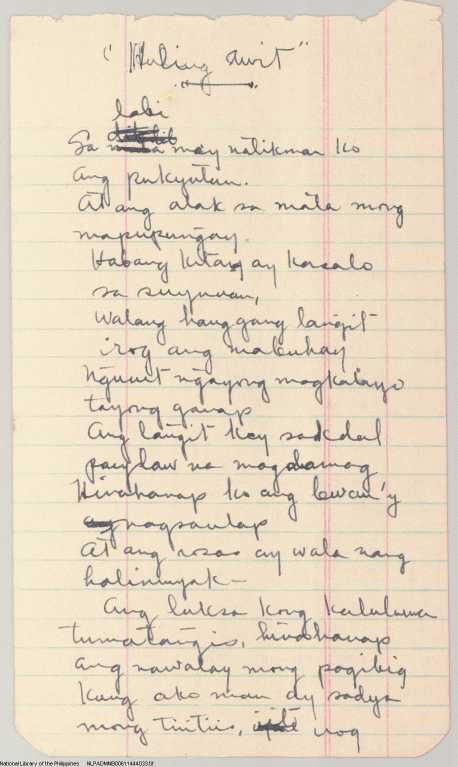 "Huling Awit"
labi
Sa may natikman ko
ang pukyutan.
At ang alak sa mata mong
mapupungay
Habang kitang ay kasalo
sa suyuuan,
Walang hanggang langit
irog ang mabuhay
Ngunit ngayong magkalayo
tayong ganap
Ang langit ko'y sakdal
panglaw na magdamag
Hinahanap ko ang buwan'y
nagsaulap
At ang rosas ay wala nang
halimuyak—
Ang luksa kong kaluluwa
tumatangis, hinahanap
ang nawalay mong pagibig
Kung ako man ay sadya
mong tiniis, irog
National Library of the Philippines NLPADMNB00611444033.tif